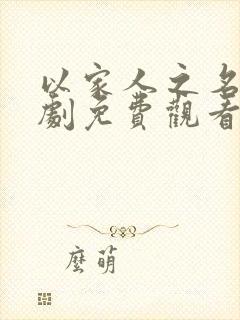 以家人之名
劇免費觀看
麼萌